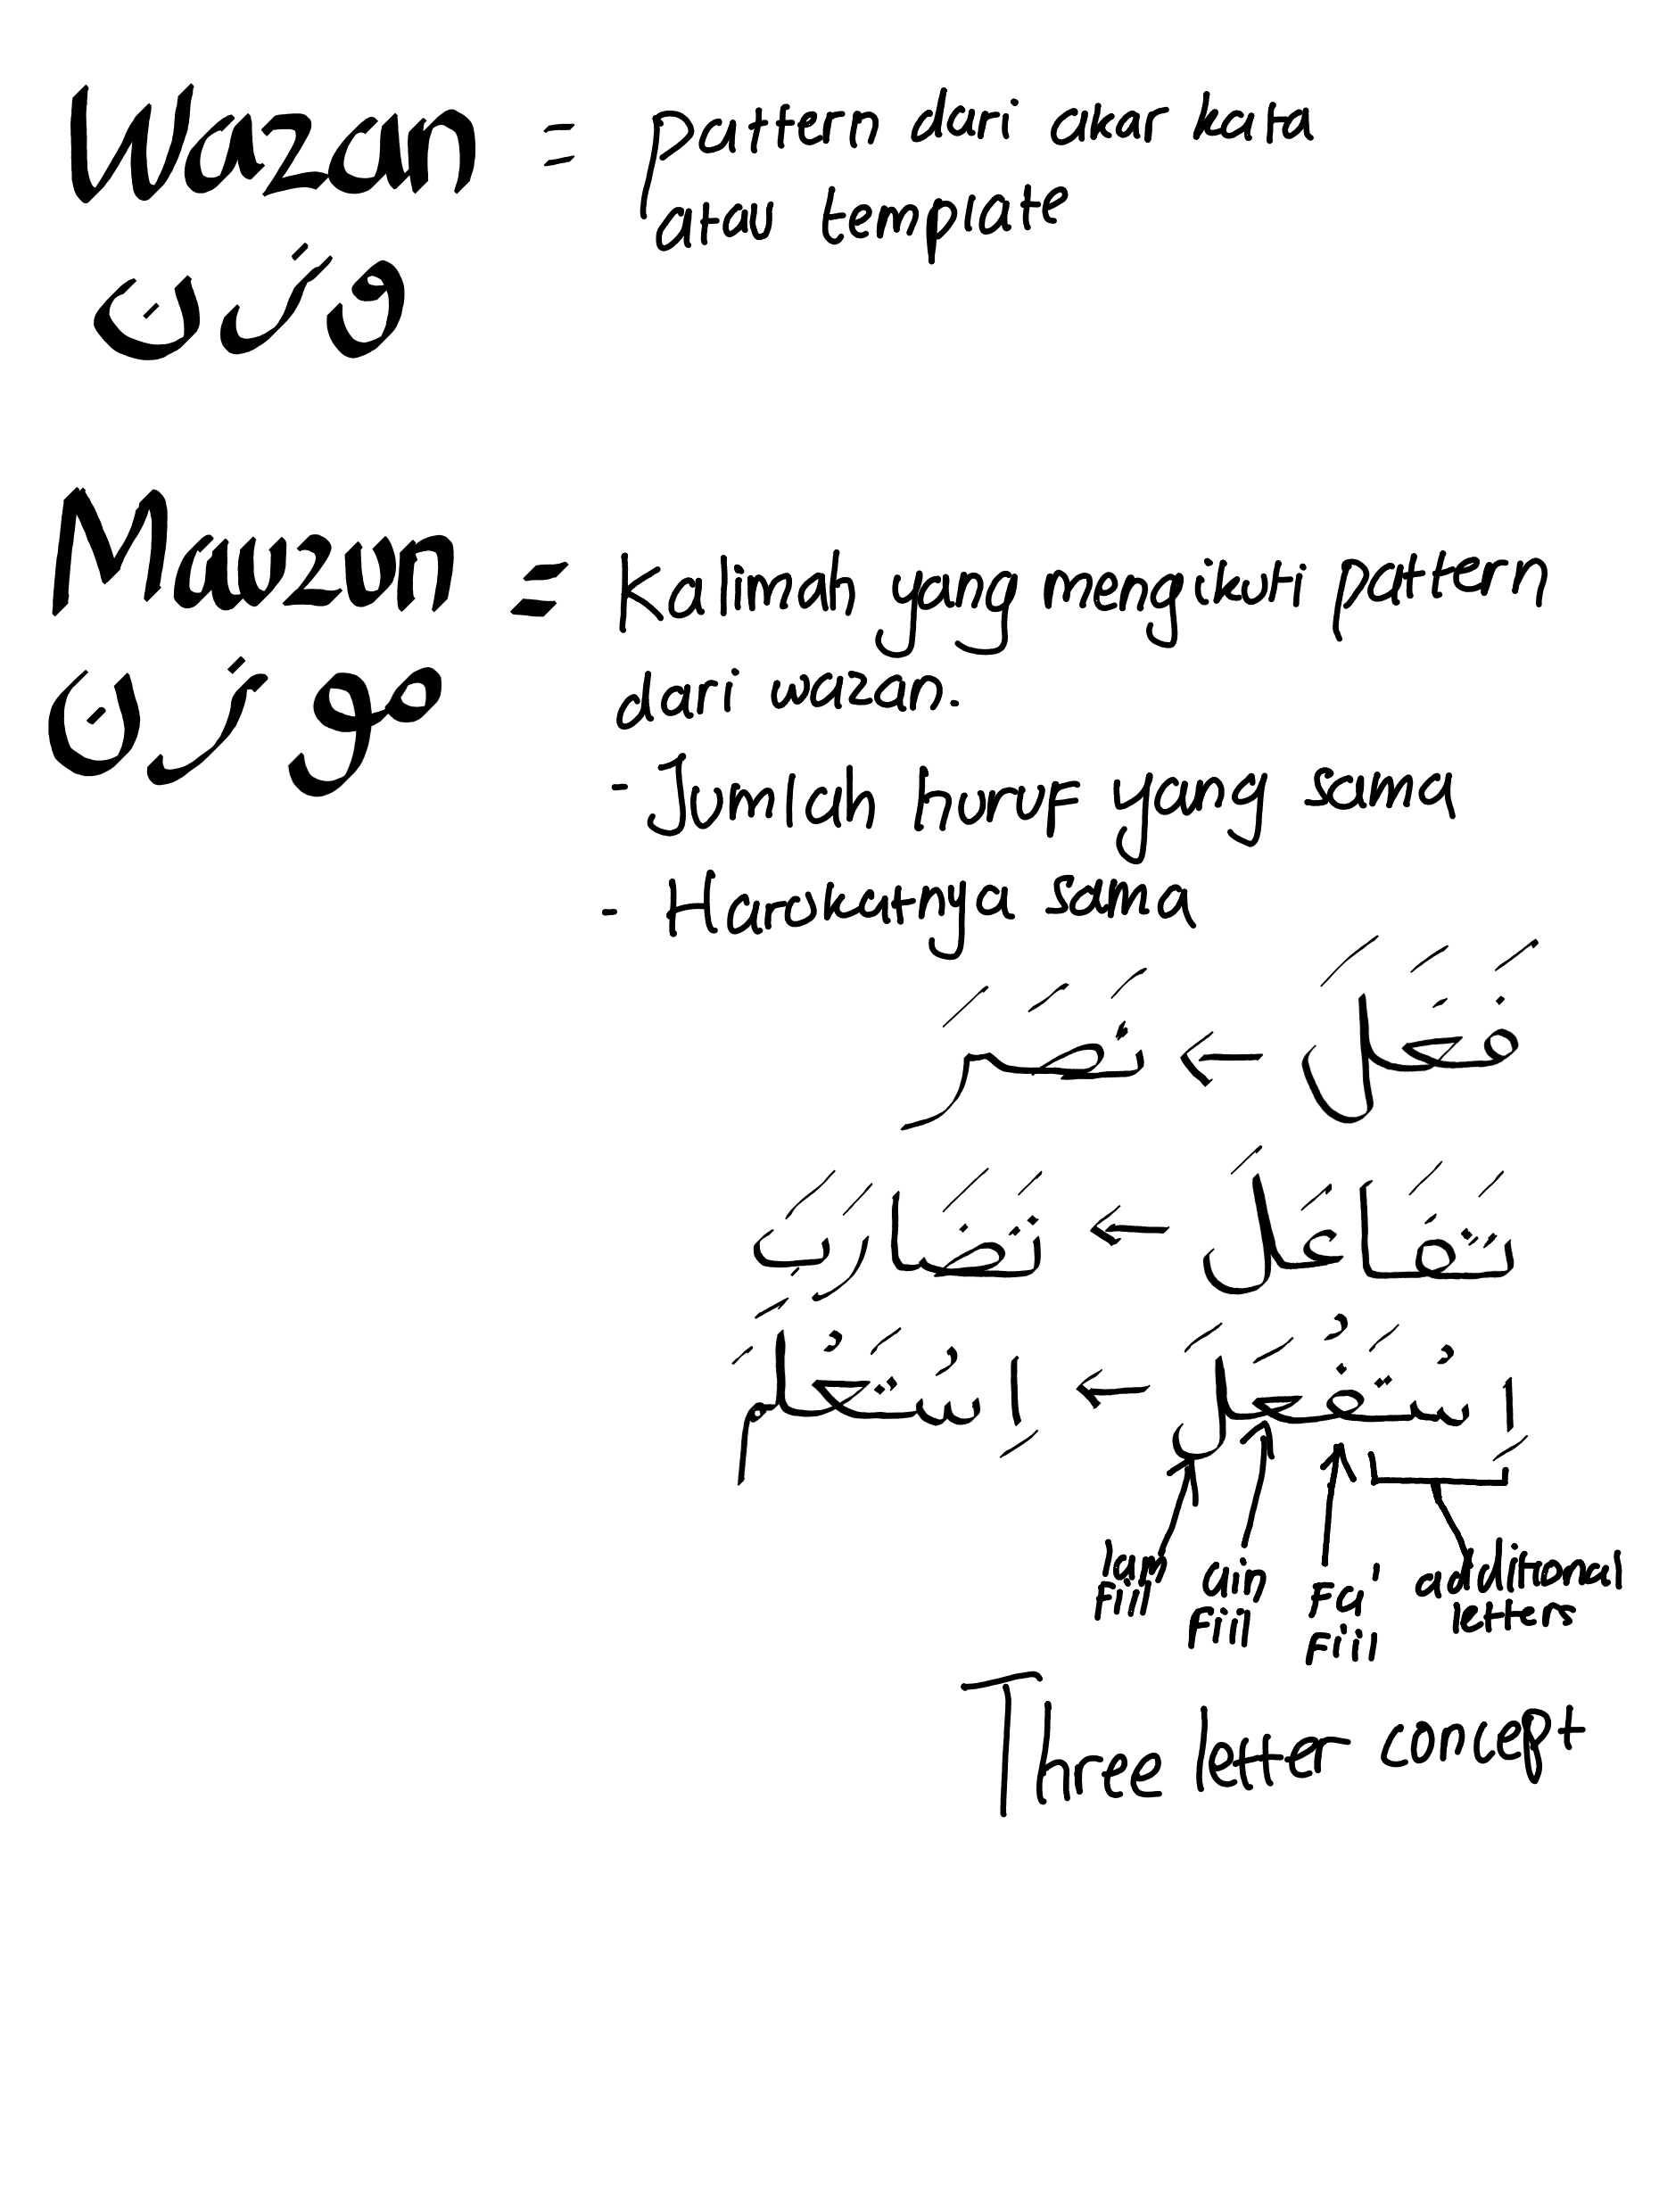 Wazan = pattern dari akar kata
atau template
وزن
Mauzun = Kalimah yang mengikuti pattern
موزن
dari wazan.
- Jumlah huruf yang sama
- Harokatnya sama
فَعَلَ ← نَصَرَ
تَفَاعَلَ ← تَضَارَبَ
اِسْتَفْعَلَ ← اِسْتَعْلَمَ
lam ain Fa' additional
Fiil Fiil Fi'il letters
Three letter concept